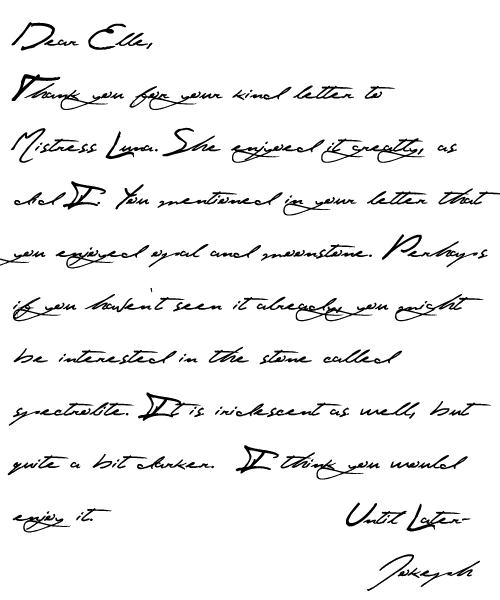 Dear Elle,
Thank you for your kind letter to
Mistress Luna. She enjoyed it greatly, as
did I. You mentioned in your letter that
you enjoyed opal and moonstone. Perhaps
if you haven't seen it already, you might
be interested in the stone called
spectrolite. It is iridescent as well, but
quite a bit darker. I think you would
enjoy it. Until Later-